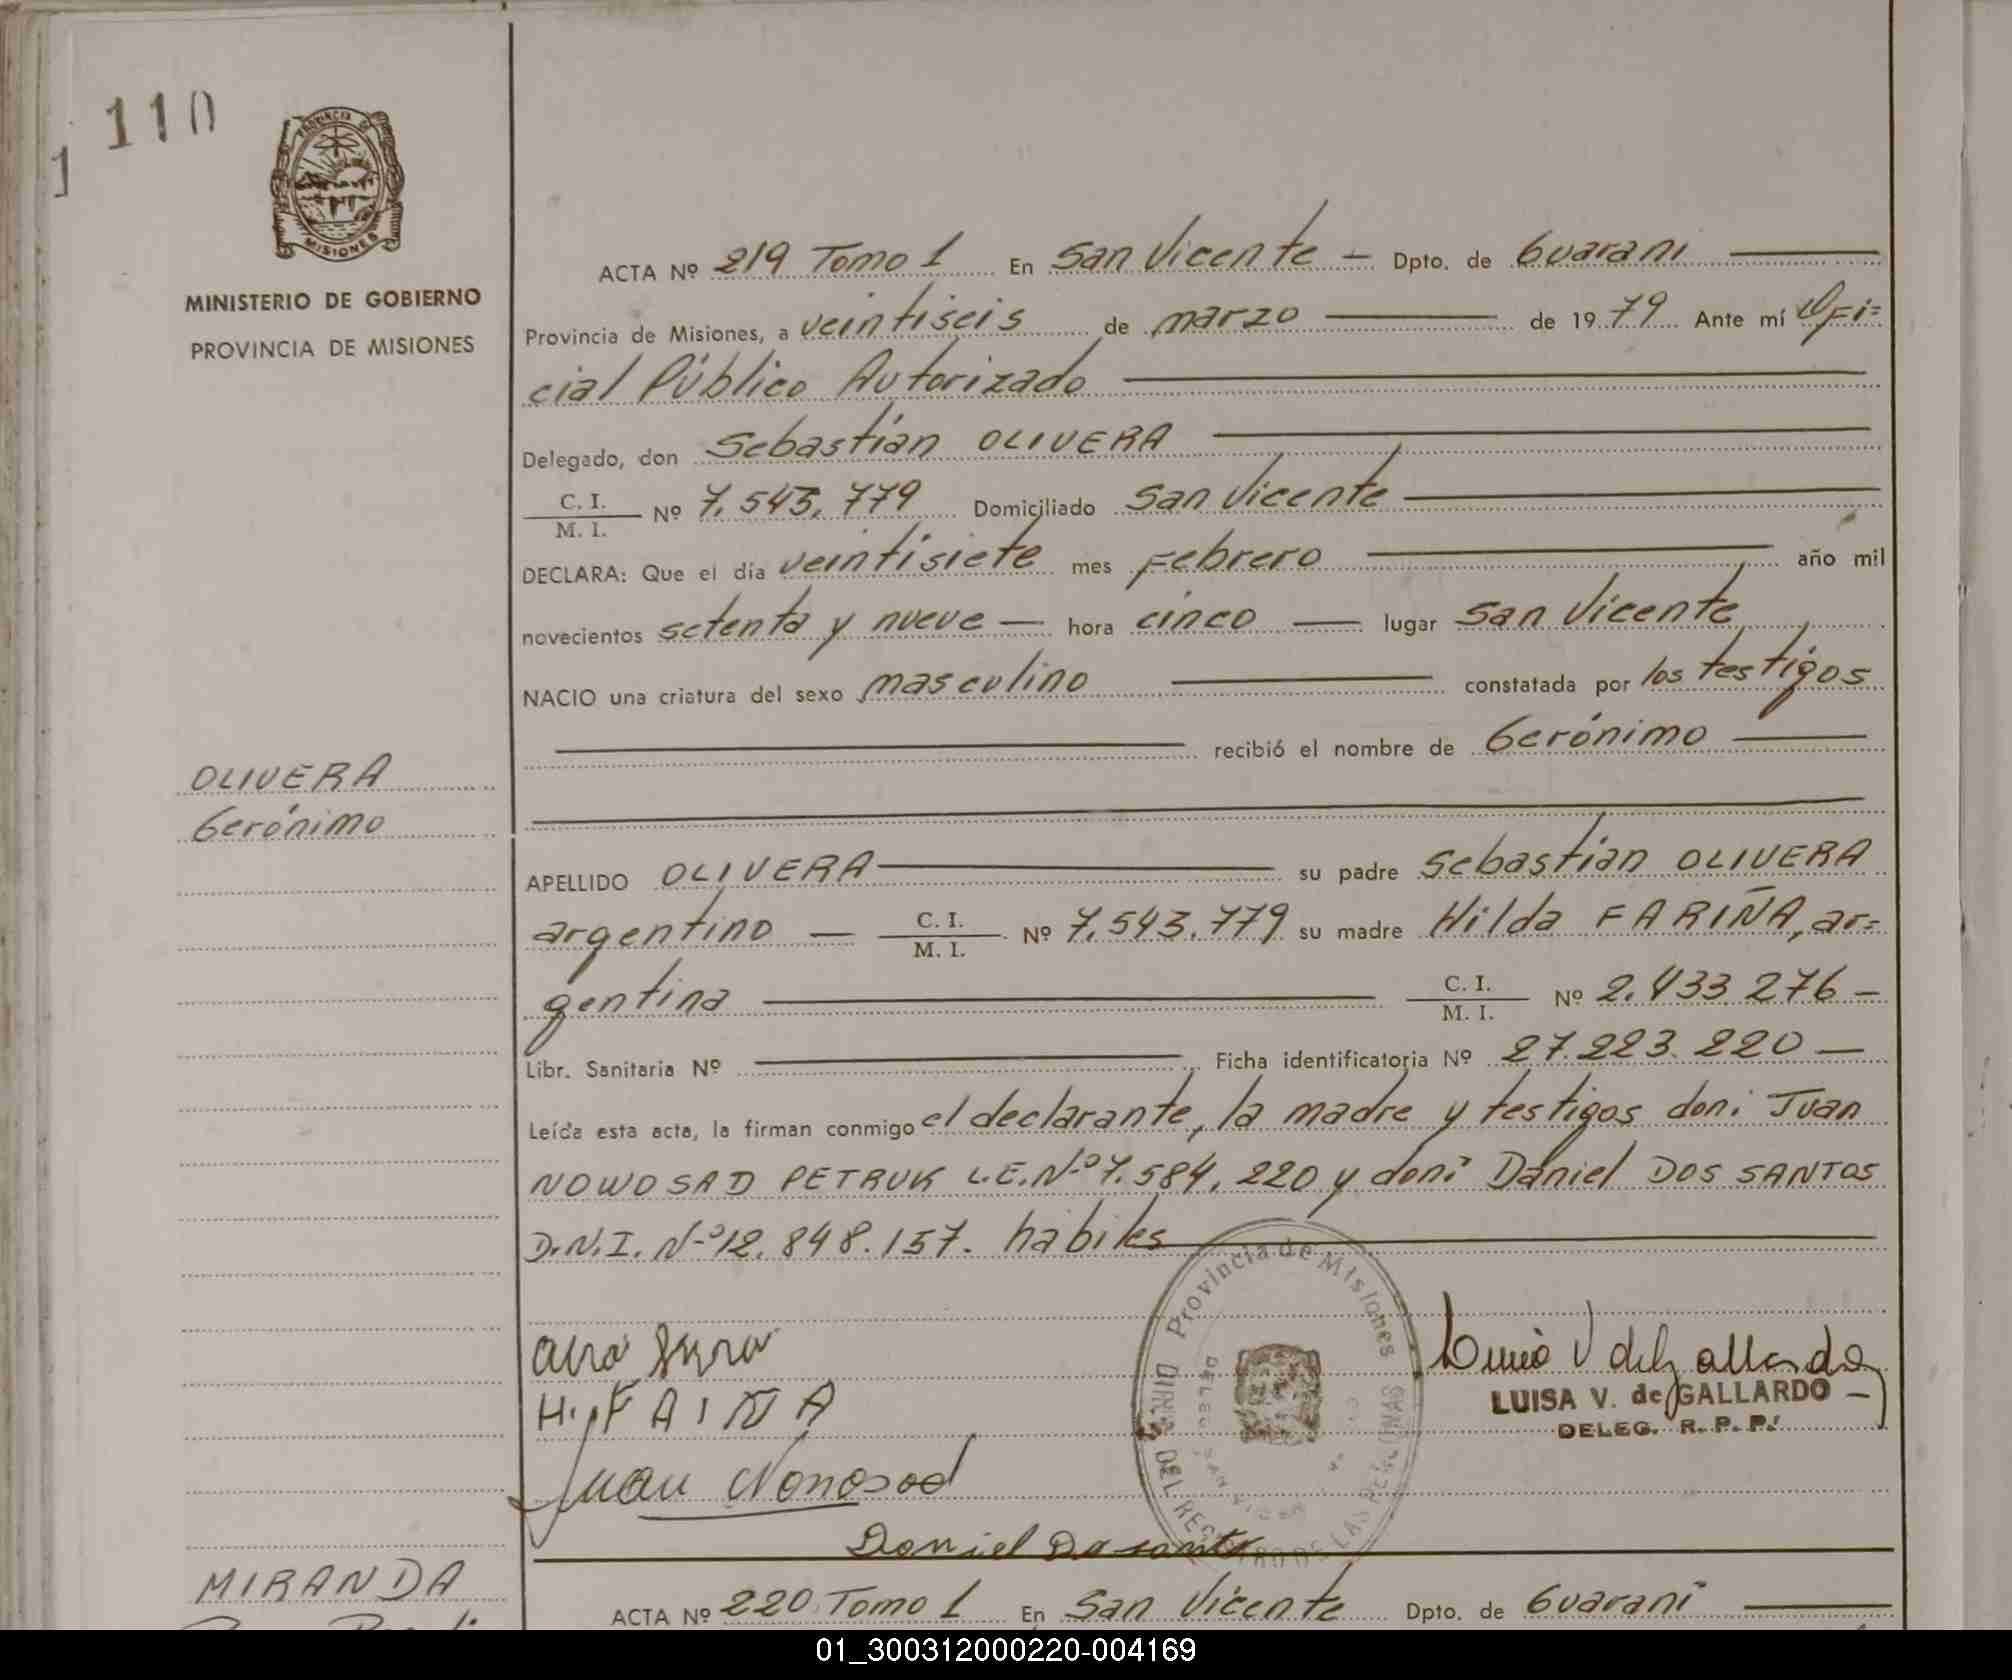 110
1
PROVINCIA DE
MISIONES
MINISTERIO DE GOBIERNO
PROVINCIA DE MISIONES
ACTA Nº 219 Tomo 1 En San Vicente — Dpto. de Guarani
Provincia de Misiones, a veintiseis de marzo de 1979 Ante mí Ofi=
cial Público Autorizado
Delegado, don Sebastián OLIVERA
C. I.
M. I. Nº 7.543.779 Domiciliado San Vicente
DECLARA: Que el día veintisiete mes Febrero año mil
novecientos setenta y nueve — hora cinco — lugar San Vicente
NACIO una criatura del sexo masculino constatada por los testigos
recibió el nombre de Gerónimo
OLIVERA
Gerónimo
APELLIDO OLIVERA su padre Sebastián OLIVERA
argentino — C. I.
M. I. Nº 7.543.779 su madre Hilda FARIÑA, ar=
gentina C. I.
M. I. Nº 2.433.276 —
Libr. Sanitaria Nº Ficha identificatoria Nº 27.223.220 —
Leída esta acta, la firman conmigo el declarante, la madre y testigos don: Juan
NOWOSAD PETRUK L.E.Nº 7.584.220 y don: Daniel DOS SANTOS
D.N.I. Nº 12.848.157. hábiles
Provincia de Misiones
H. FAIÑA
Juan Nonosad
Daniel
LUISA V. de GALLARDO
DELEG. R. P. P.
MIRANDA
ACTA Nº 220 Tomo 1 En San Vicente Dpto. de Guarani
01_300312000220-004169